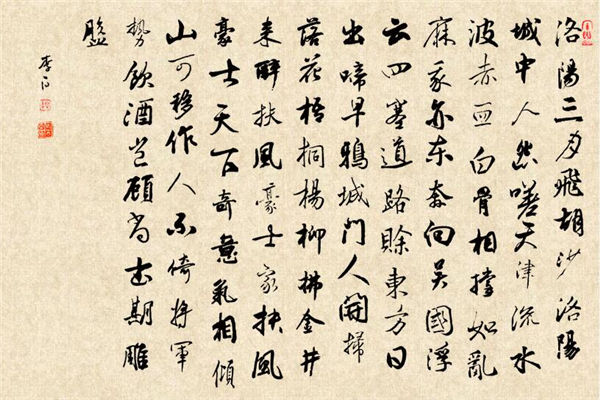 洛陽三月飛胡沙洛陽
城中人怨嗟天津流水
波赤血白骨相撐如亂
麻我亦东奔向吴國浮
云四塞道路賒東方日
出啼早鴉城門人開掃
落花梧桐楊柳拂金井
来醉扶風豪士家扶風
豪士天下奇意氣相傾
山可移作人不倚将軍
勢飲酒岂顧尚书期雕
盤
李白